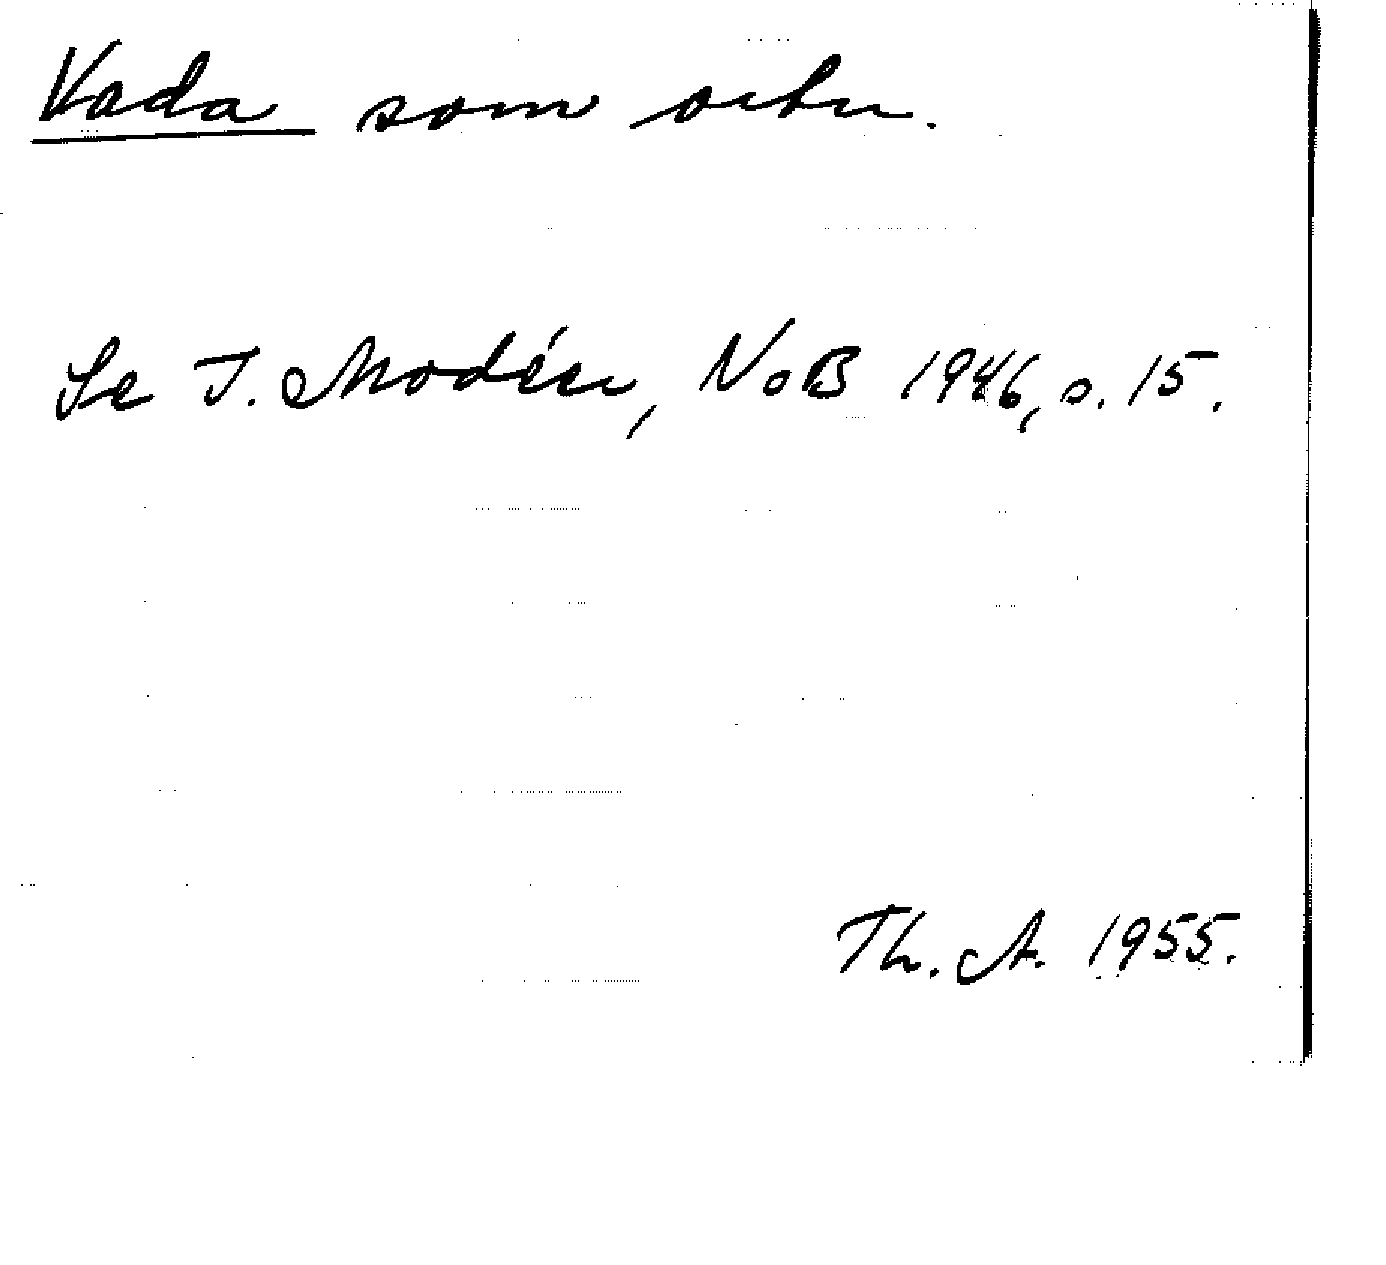 Vada som ortn.
Se I. Modéer, NoB 1946, s. 15.
Th. A. 1955.